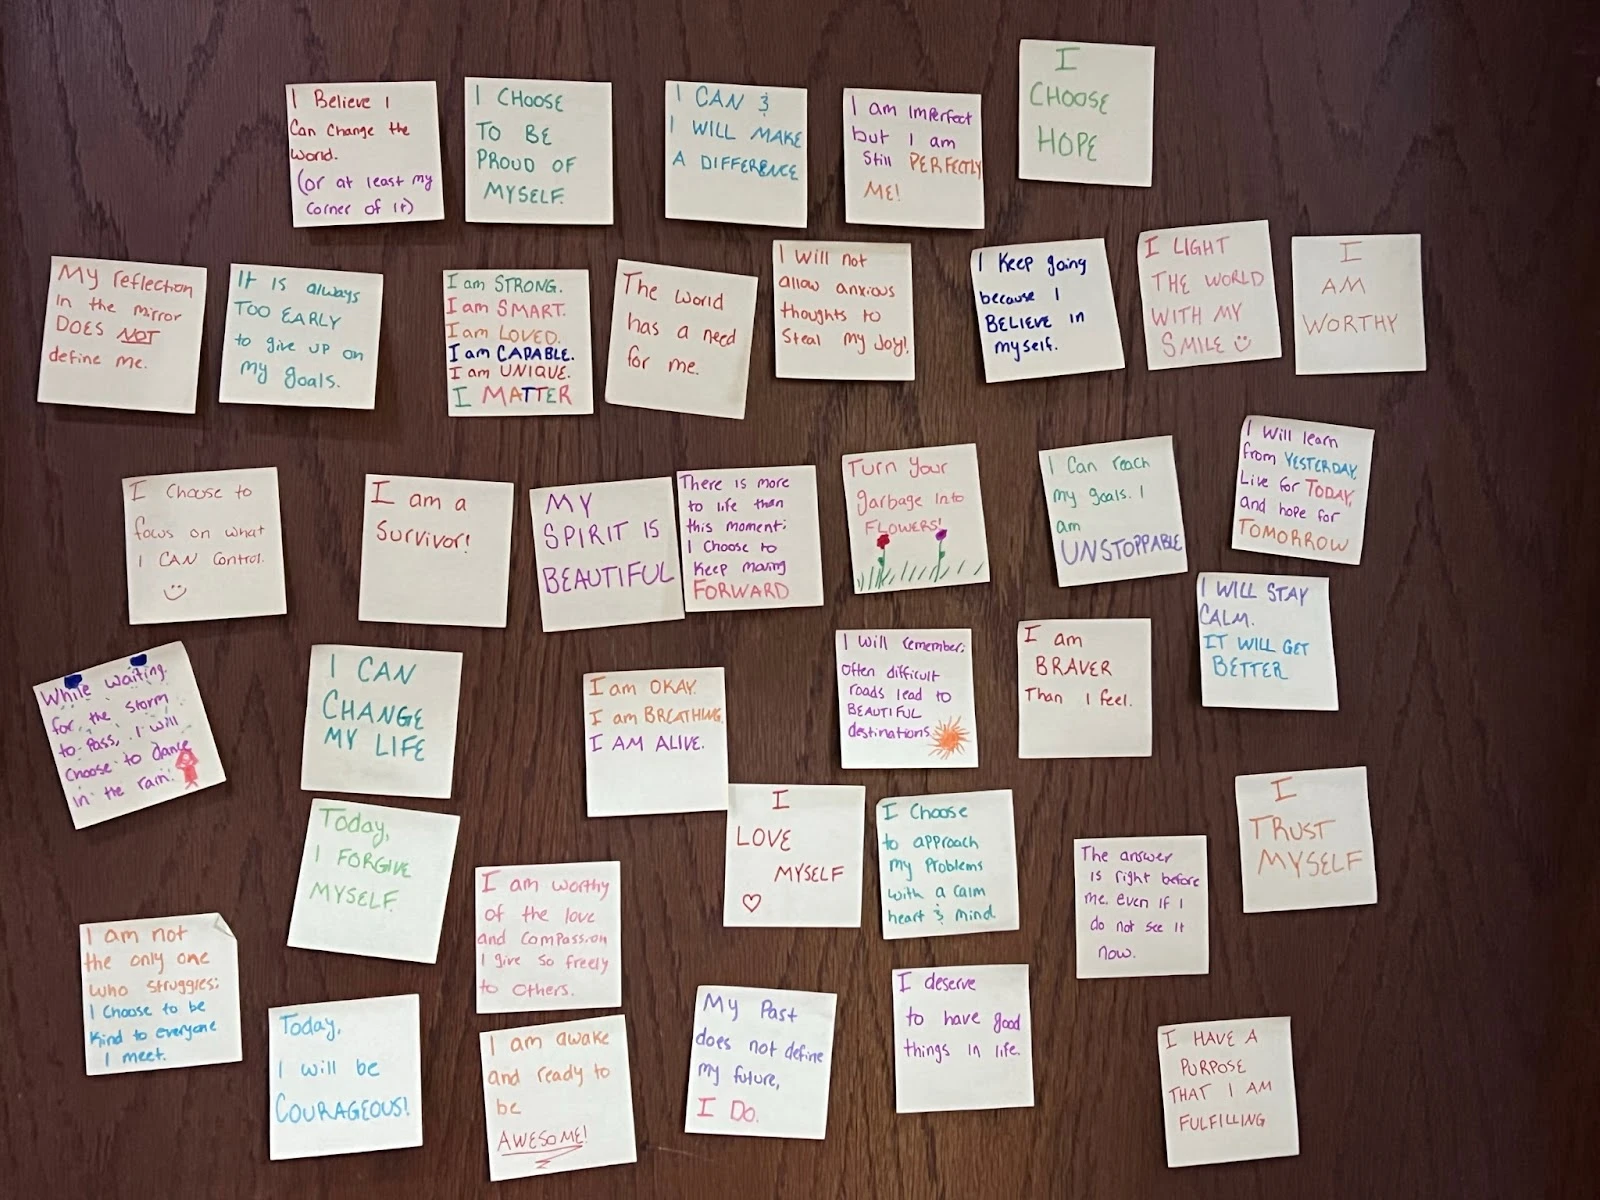 I Believe I
Can Change the
World.
(or at least my
corner of it)
I CHOOSE
TO BE
PROUD OF
MYSELF.
I CAN &
I WILL MAKE
A DIFFERENCE
I am Imperfect
but I am
Still PERFECTLY
ME!
I
CHOOSE
HOPE
My reflection
in the mirror
DOES NOT
define me.
It is always
TOO EARLY
to give up on
my goals.
I am STRONG.
I am SMART.
I am LOVED.
I am CAPABLE.
I am UNIQUE.
I MATTER
The world
has a need
for me.
I will not
allow anxious
thoughts to
Steal my Joy!
I Keep going
because I
BELIEVE in
myself.
I LIGHT
THE WORLD
WITH MY
SMILE
I
AM
WORTHY
I choose to
focus on what
I CAN control.
I am a
Survivor!
MY
SPIRIT IS
BEAUTIFUL
There is more
to life than
this moment:
I Choose to
Keep moving
FORWARD
Turn Your
garbage into
FLOWERS!
I Can reach
my goals. I
am
UNSTOPPABLE
I Will learn
from YESTERDAY,
Live for TODAY,
and hope for
TOMORROW
While waiting
for the storm
to pass, I will
Choose to dance
in the rain!
I CAN
CHANGE
MY LIFE
I am OKAY.
I am BREATHING.
I AM ALIVE.
I will remember:
Often difficult
roads lead to
BEAUTIFUL
destinations.
I am
BRAVER
Than I feel.
I WILL STAY
CALM.
IT WILL GET
BETTER
Today,
I FORGIVE
MYSELF.
I am worthy
of the love
and compassion
I give so freely
to others.
I
LOVE
MYSELF
I Choose
to approach
my problems
with a calm
heart & mind.
The answer
is right before
me. even if I
do not see it
now.
I
TRUST
MYSELF
I am not
the only one
who struggles:
I Choose to be
Kind to everyone
I meet.
Today,
I will be
COURAGEOUS!
I am awake
and ready to
be
AWESOME!
My Past
does not define
my future,
I DO.
I deserve
to have good
things in life.
I HAVE A
PURPOSE
THAT I AM
FULFILLING